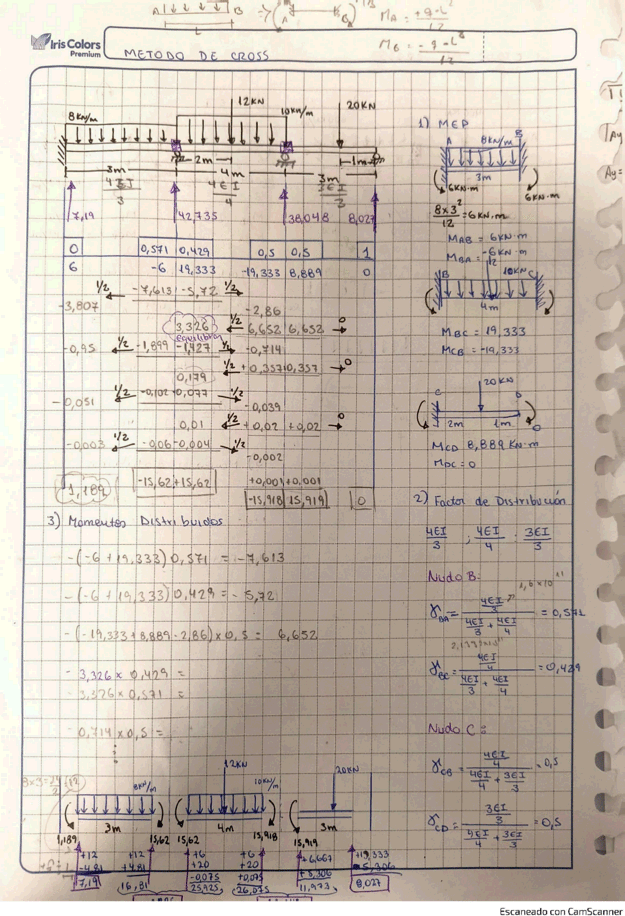 A B
M_A = +q·L² / 12
L
M_B = -q·L² / 12
Iris Colors
Premium
METODO DE CROSS
8KN/m 12KN 10KN/m 20KN
2m 1m
3m 4m 3m
4EI/3 4EI/4 3EI/3
7,19 42,735 38,048 8,027
0 0,571 0,429 0,5 0,5 1
6 -6 19,333 -19,333 8,889 0
1/2 -7,613 -5,72 1/2
-3,807 -2,86
3,326 1/2 6,652 6,652 0
equilibra
-0,95 -1,899 -1,427 1/2 -0,714
1/2 +0,357 +0,357 0
0,179
1/2 -0,102 -0,077 1/2
-0,051 -0,039
0,01 1/2 +0,02 +0,02 0
-0,003 1/2 -0,06 -0,004 1/2
-0,002
1,189 -15,62 +15,62 +0,001 +0,001
-15,918 15,919 0
3) Momentos Distribuidos
-(-6 + 19,333) 0,571 = -7,613
-(-6 + 19,333) 0,429 = -5,72
-(-19,333 + 8,889 - 2,86) × 0,5 = 6,652
- 3,326 × 0,429 =
- 3,326 × 0,571 =
0,714 × 0,5 =
8KN/m 12KN 10KN/m 20KN
3m 4m 3m
1,189 15,62 15,62 15,918 15,919
+12 +12 +6 +6 +6,667 +13,333
-4,81 +4,81 +20 +20 +5,306 -5,306
7,19 16,81 -0,075 +0,075 11,973 8,027
25,925 26,075
1) MEP
A 8KN/m B
3m
6KN·m 6KN·m
8×3²/12 = 6KN·m
M_AB = 6KN·m
M_BA = -6KN·m
B 12 10KN C
4m
M_BC = 19,333
M_CB = -19,333
20KN
C D
2m 1m 0
M_CD 8,889 KN·m
M_DC = 0
2) Factor de Distribución
4EI/3 ; 4EI/4 ; 3EI/3
Nudo B:
γ_BA = (4EI/3) / (4EI/3 + 4EI/4) = 0,571
γ_BC = (4EI/4) / (4EI/3 + 4EI/4) = 0,429
Nudo C:
γ_CB = (4EI/4) / (4EI/4 + 3EI/3) = 0,5
γ_CD = (3EI/3) / (4EI/4 + 3EI/3) = 0,5
Escaneado con CamScanner